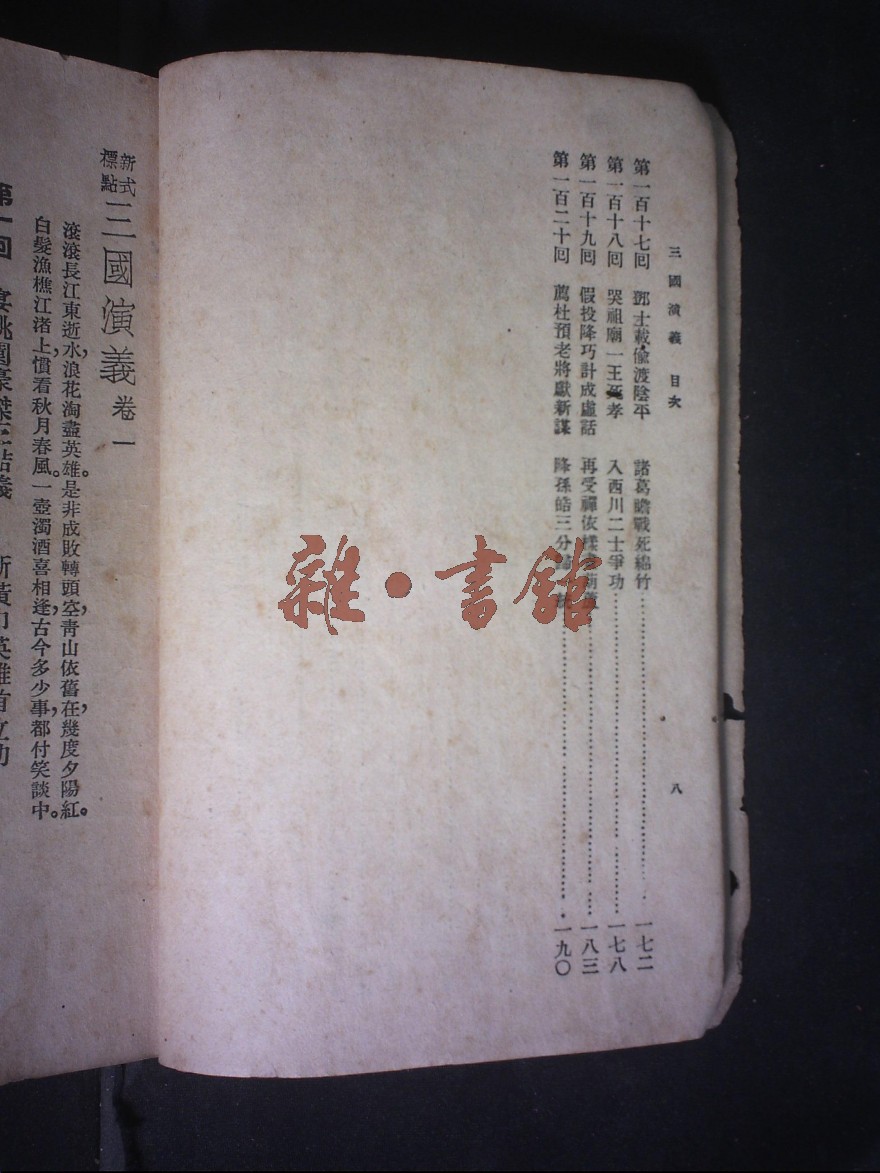 三國演義 目次 八
第一百十七回 鄧士載偷渡陰平 諸葛瞻戰死綿竹……一七二
第一百十八回 哭祖廟一王死孝 入西川二士爭功……一七八
第一百十九回 假投降巧計成虛話 再受禪依樣……一八三
第一百二十回 薦杜預老將獻新謀 降孫皓三分……一九〇
雜·書館
新式標點 三國演義 卷一
滾滾長江東逝水，浪花淘盡英雄。是非成敗轉頭空，青山依舊在，幾度夕陽紅。
白髮漁樵江渚上，慣看秋月春風。一壺濁酒喜相逢，古今多少事，都付笑談中。
第一回 宴桃園豪傑三結義 斬黃巾英雄首立功